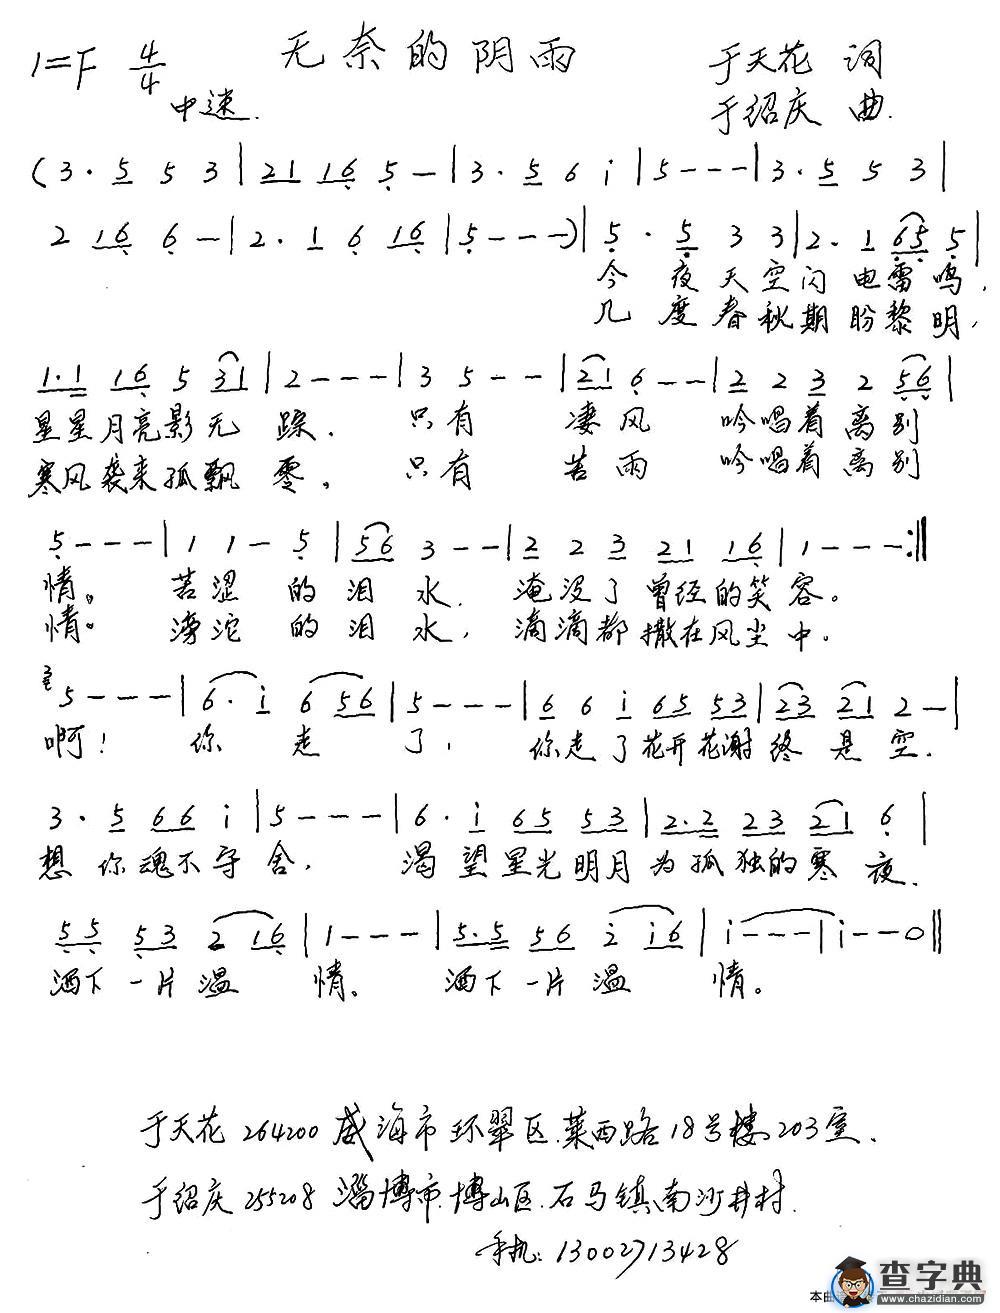 无奈的阴雨
1=F 4/4
中速.
于天花 词
于绍庆 曲.
(3· 5 5 3 | 21 16 5 — | 3· 5 6 i | 5 - - - | 3· 5 5 3 |
2 16 6 — | 2· 1 6 16 | 5 - - -) | 5· 5 3 3 | 2· 1 65 5 |
今夜天空闪电雷鸣,
几度春秋期盼黎明,
1·1 16 5 31 | 2 - - - | 3 5 - - | 21 6 - - | 2 2 3 2 56 |
星星月亮影无踪. 只有 凄风 吟唱着离别
寒风袭来孤飘零, 只有 苦雨 吟唱着离别
5 - - - | 1 1 - 5 | 56 3 - - | 2 2 3 21 16 | 1 - - - :||
情。 苦涩 的泪水. 淹没了曾经的笑容。
情。 滂沱 的泪水, 滴滴都撒在风尘中.
5 - - - | 6· i 6 56 | 5 - - - | 6 6 i 65 53 | 23 21 2 — |
啊! 你走了, 你走了花开花谢终是空.
3· 5 66 i | 5 - - - | 6· i 65 53 | 2·2 23 21 6 |
想你魂不守舍, 渴望星光明月为孤独的寒夜.
55 53 2 16 | 1 - - - | 5·5 56 2 i6 | i - - - | i - - 0 ||
洒下一片温情、 洒下一片温情。
于天花 264200 威海市环翠区.莱西路18号楼203室.
于绍庆 255208 淄博市.博山区.石马镇南沙井村.
手机: 13002713428
查字典
www.chazidian.com
本曲